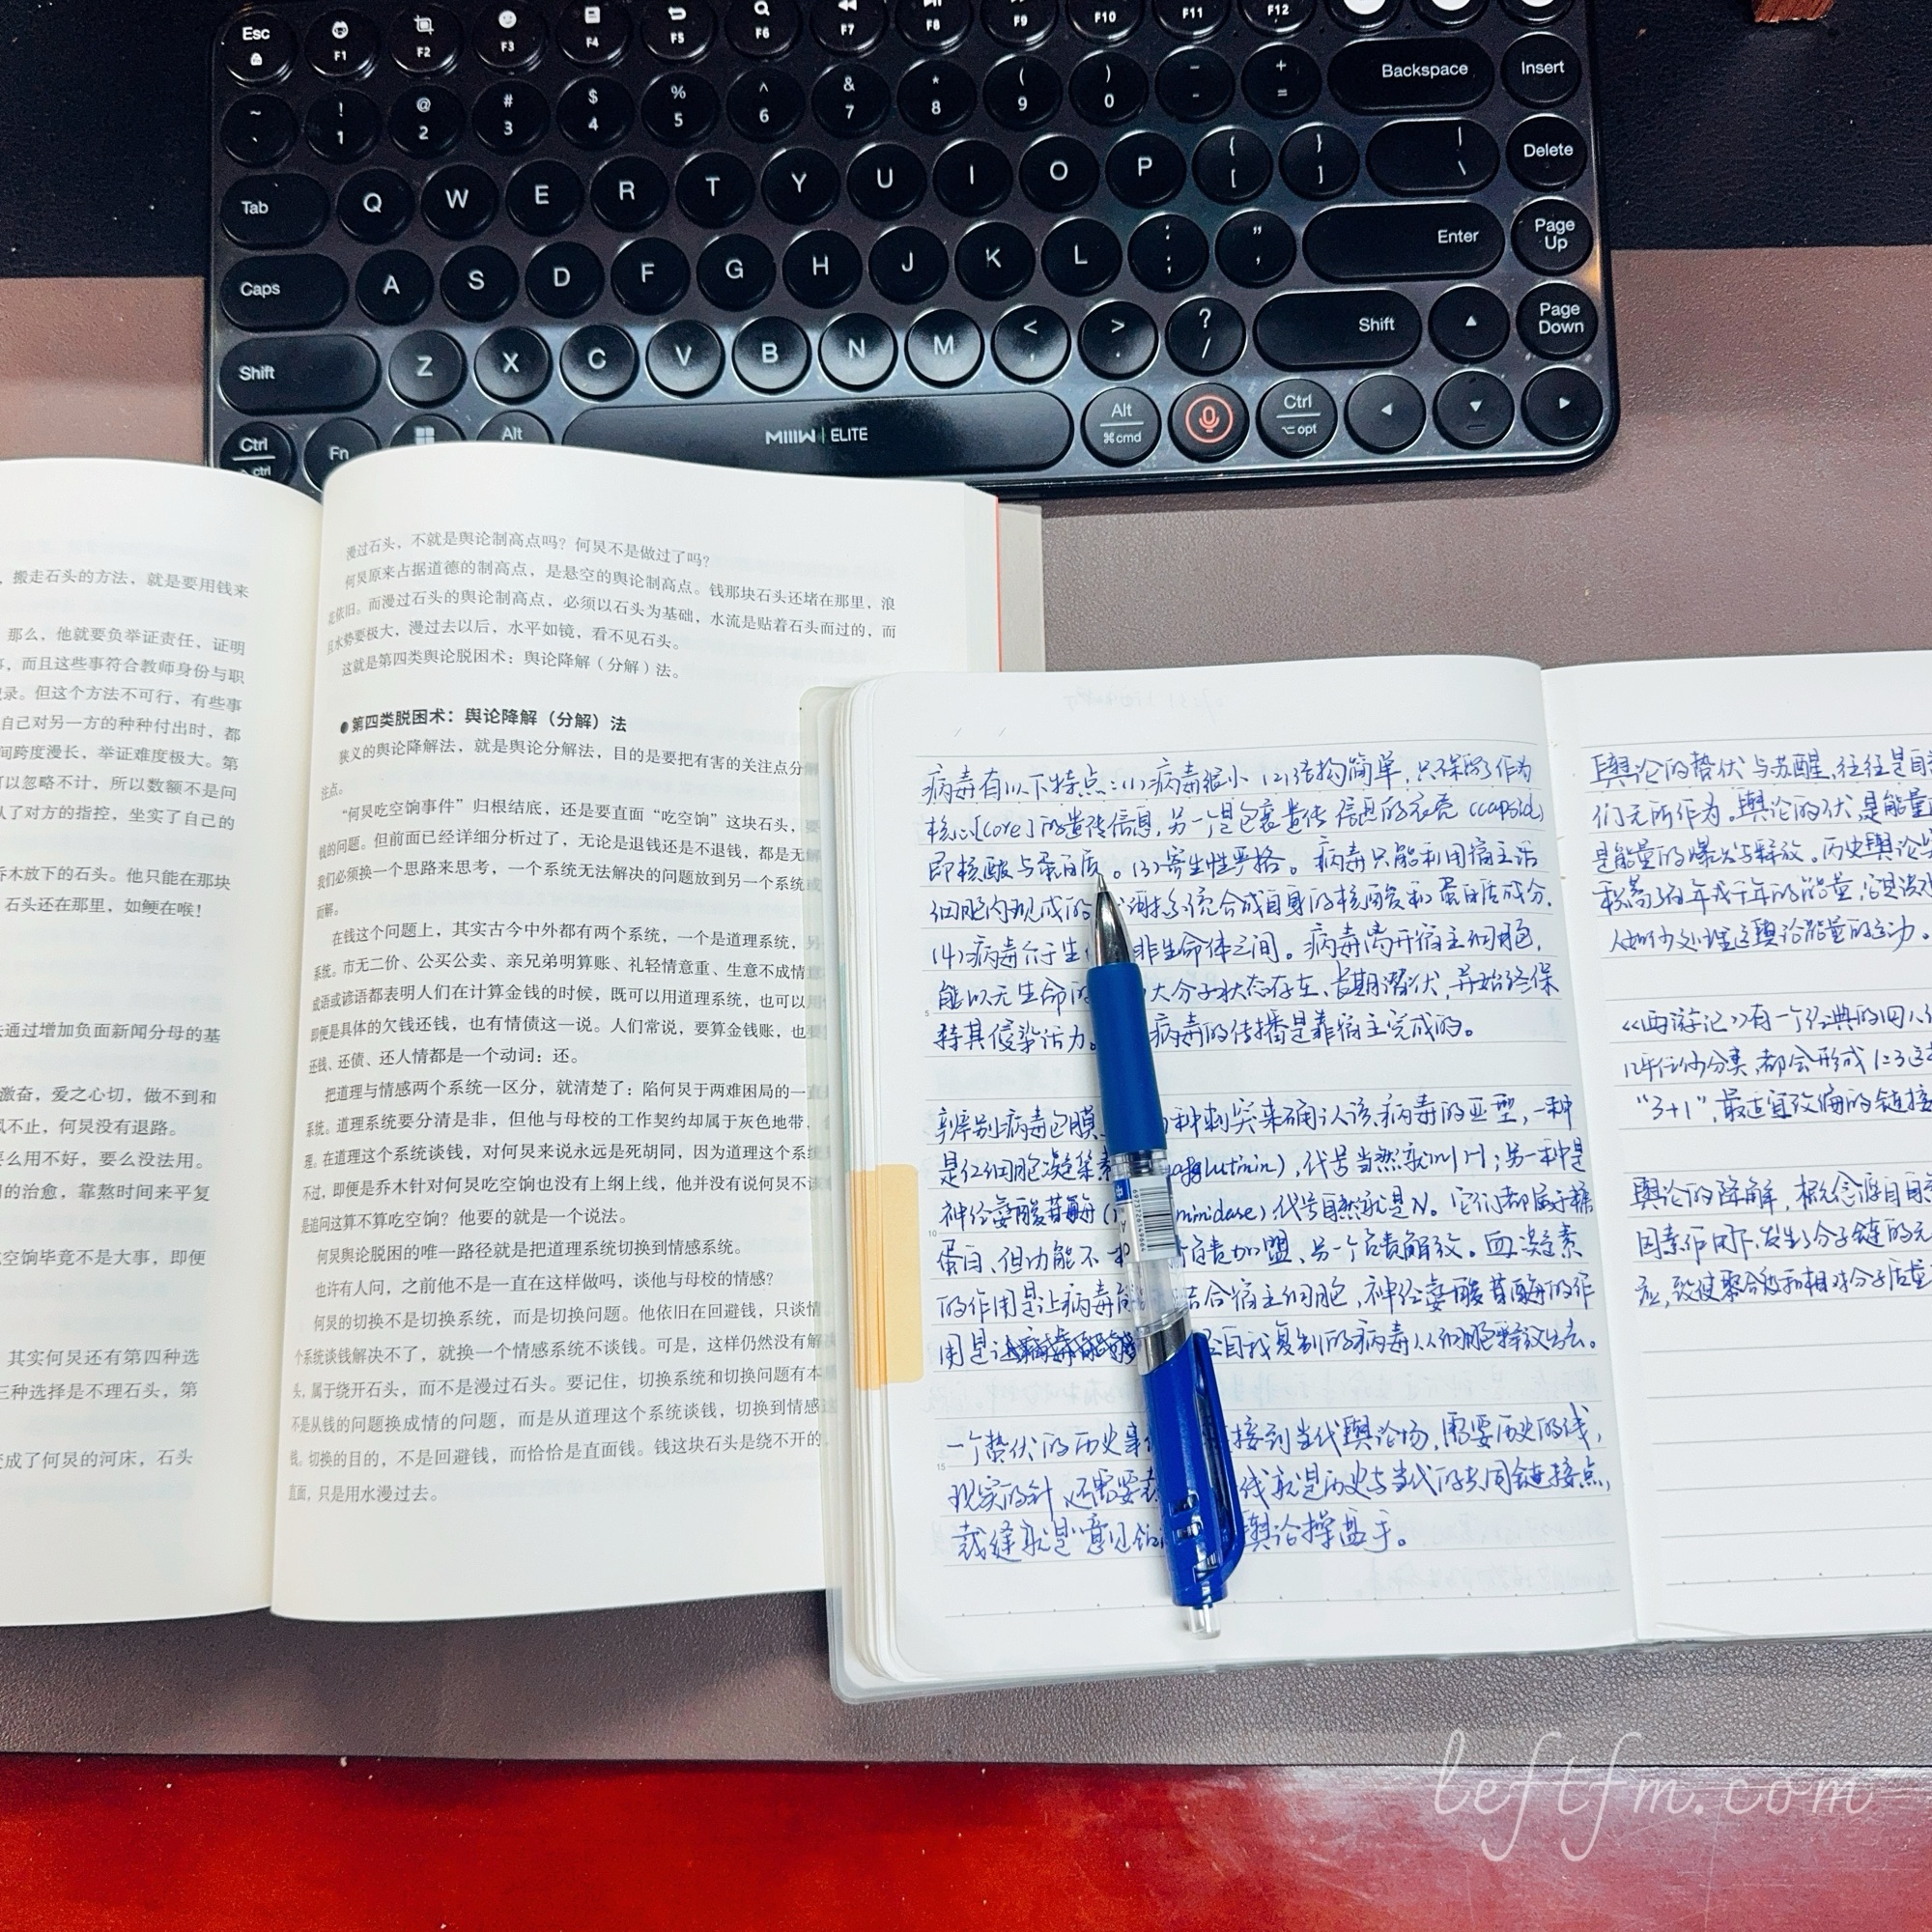 Esc F1 F2 F3 F4 F5 F6 F7 F8 F9 F10 F11 F12
~ ` ! 1 @ 2 # 3 $ 4 % 5 ^ 6 & 7 * 8 ( 9 ) 0 _ - + = Backspace Insert
Tab Q W E R T Y U I O P { [ } ] | \ Delete
Caps A S D F G H J K L : ; " ' Enter Page Up
Shift Z X C V B N M < , > . ? / Shift Page Down
Ctrl ctrl Fn Alt MIIIW ELITE Alt ⌘cmd Ctrl ⌥opt
，搬走石头的方法，就是要用钱来
那么，他就要负举证责任，证明
，而且这些事符合教师身份与职
录。但这个方法不可行，有些事
自己对另一方的种种付出时，都
间跨度漫长，举证难度极大。第
可以忽略不计，所以数额不是问
认了对方的指控，坐实了自己的
乔木放下的石头。他只能在那块
石头还在那里，如鲠在喉！
通过增加负面新闻分母的基
激奋，爱之心切，做不到和
风不止，何炅没有退路。
要么用不好，要么没法用。
的治愈，靠熬时间来平复
空饷毕竟不是大事，即便
其实何炅还有第四种选
三种选择是不理石头，第
变成了何炅的河床，石头
漫过石头，不就是舆论制高点吗？何炅不是做过了吗？
何炅原来占据道德的制高点，是悬空的舆论制高点。钱那块石头还堵在那里，浪
花依旧。而漫过石头的舆论制高点，必须以石头为基础，水流是贴着石头而过的，而
且水势要极大，漫过去以后，水平如镜，看不见石头。
这就是第四类舆论脱困术：舆论降解（分解）法。
●第四类脱困术：舆论降解（分解）法
狭义的舆论降解法，就是舆论分解法，目的是要把有害的关注点分解
注点。
“何炅吃空饷事件”归根结底，还是要直面“吃空饷”这块石头，要
钱的问题。但前面已经详细分析过了，无论是退钱还是不退钱，都是无解
我们必须换一个思路来思考，一个系统无法解决的问题放到另一个系统或
而解。
在钱这个问题上，其实古今中外都有两个系统，一个是道理系统，另
系统。市无二价、公买公卖、亲兄弟明算账、礼轻情意重、生意不成情意
成语或谚语都表明人们在计算金钱的时候，既可以用道理系统，也可以用
即便是具体的欠钱还钱，也有情债这一说。人们常说，要算金钱账，也要
还钱、还债、还人情都是一个动词：还。
把道理与情感两个系统一区分，就清楚了：陷何炅于两难困局的一直是
系统。道理系统要分清是非，但他与母校的工作契约却属于灰色地带，
理。在道理这个系统谈钱，对何炅来说永远是死胡同，因为道理这个系统
不过，即便是乔木针对何炅吃空饷也没有上纲上线，他并没有说何炅不该
是追问这算不算吃空饷？他要的就是一个说法。
何炅舆论脱困的唯一路径就是把道理系统切换到情感系统。
也许有人问，之前他不是一直在这样做吗，谈他与母校的情感？
何炅的切换不是切换系统，而是切换问题。他依旧在回避钱，只谈情
个系统谈钱解决不了，就换一个情感系统不谈钱。可是，这样仍然没有解决
头，属于绕开石头，而不是漫过石头。要记住，切换系统和切换问题有本质
不是从钱的问题换成情的问题，而是从道理这个系统谈钱，切换到情感这
钱。切换的目的，不是回避钱，而恰恰是直面钱。钱这块石头是绕不开的，
直面，只是用水漫过去。
病毒有以下特点：(1)病毒很小 (2)结构简单，只保留了作为
核心[core]的遗传信息，另一个是包裹遗传信息的衣壳(capsid)
即核酸与蛋白质。(3)寄生性严格。病毒只能利用宿主活
细胞内现成的 谢系统合成自身的核酸和蛋白质成分.
(4)病毒介于生 非生命体之间。病毒离开宿主细胞，
能以无生命的 大分子状态存在、长期潜伏，并始终保
持其侵染活力。 病毒的传播是靠宿主完成的。
辨别病毒包膜 种刺突来确认该病毒的亚型，一种
是红细胞凝集素 agglutinin)，代号当然就叫H；另一种是
神经氨酸苷酶( minidase)代号自然就是N。它们都属于糖
蛋白、但功能不 负责加盟、另一个负责解放。血凝素
的作用是让病毒 结合宿主细胞，神经氨酸苷酶的作
用是让 自我复制的病毒从细胞释放出去。
一个蛰伏的历史事 接到当代舆论场，需要历史的线，
现实的针，还需要 线就是历史与当代的共同链接点，
裁缝就是意见 舆论操盘手。
舆论的蛰伏与苏醒，往往是自
们无所作为。舆论的伏，是能量
是能量的爆发与释放。历史舆论
积蓄了百年或千年的能量，
人如何处理这舆论能量的运动。
《西游记》有一个经典的四人
任何分类，都会形成123
“3+1”，最适宜
舆论的降解，概念源自自
因素作用下，发生了分子链的
应，致使聚合物和相对分子质量
leftfm.com